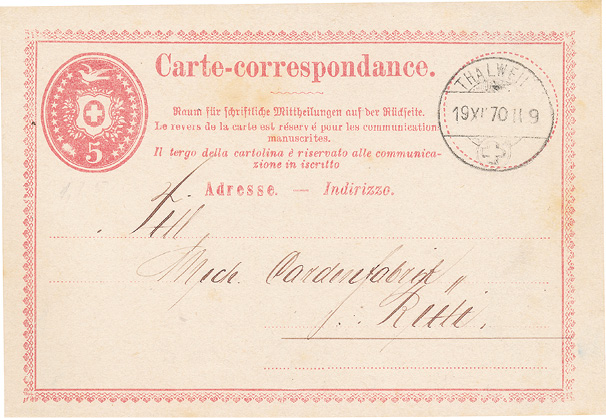 Carte-correspondance.
5
THALWEIL
19 XI 70 II 9
Raum für schriftliche Mittheilungen auf der Rückseite.
Le revers de la carte est réservé pour les communication
manuscrites.
Il tergo della cartolina è riservato alle communica-
zione in iscritto
Adresse. — Indirizzo.
Tit.
Mech. Cardenfabrik